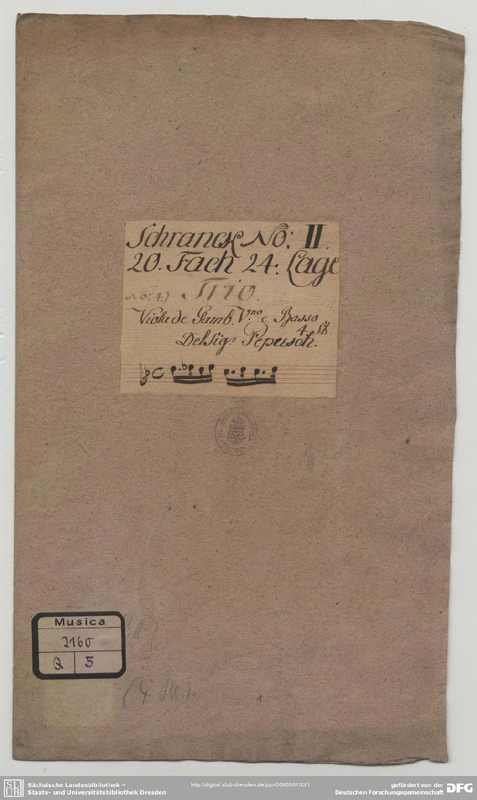 Schranck No: II.
20. Fach 24. Lage
No: 4)
Trio.
Viola de Gamb. V.no e Basso
4. St.
Del Sig.r Pepusch.
Musica
2160
Q 5
(4 St.)
Sächsische Landesbibliothek –
Staats- und Universitätsbibliothek Dresden
gefördert von der
Deutschen Forschungsgemeinschaft
DFG